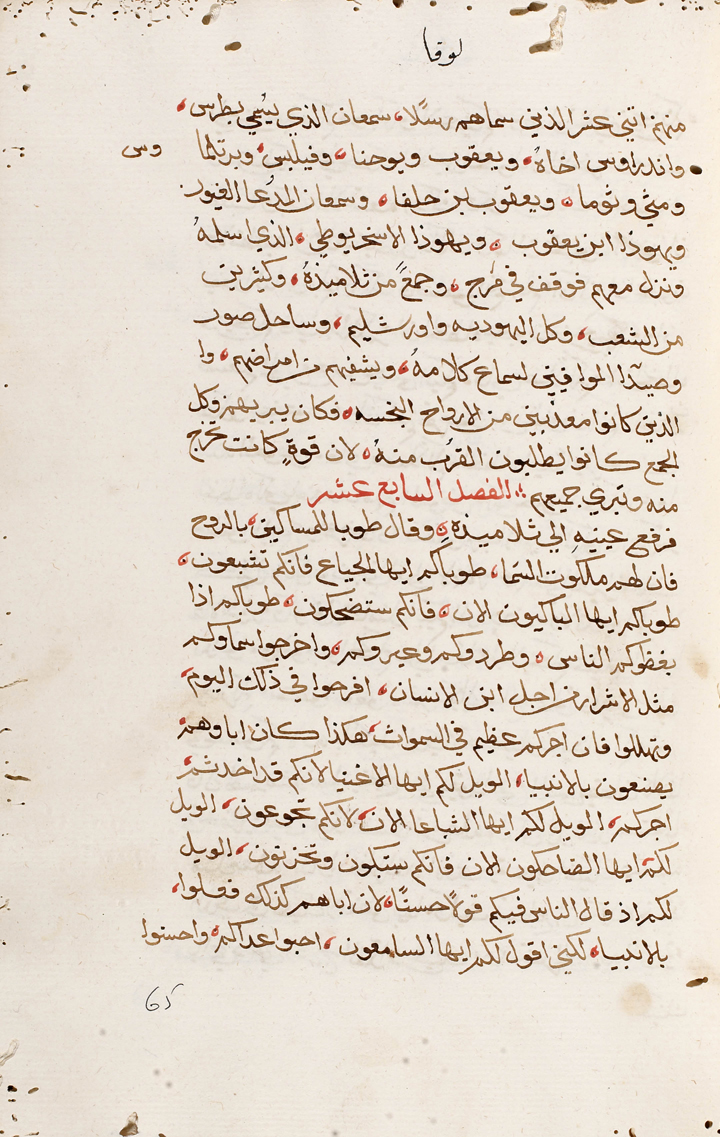 لوقا
منهم اثني عشر الذين سماهم رسلا، سمعان الذي يسمي بطرس،
واندراوس اخاه، ويعقوب ويوحنا، وفيلبس، وبرتلما وس
ومتي وثوما، ويعقوب ابن حلفا، وسمعان المدعا الغيور
ويهوذا ابن يعقوب، ويهوذا الاسخريوطي، الذي اسلمه
ونزل معهم فوقف في مرج، وجمع من تلاميذه، وكثيرين
من الشعب، وكل اليهوديه واورشليم، وساحل صور
وصيدا الموافيين لسماع كلامه، ويشفيهم من امراضهم، وا
الذين كانوا معذبين من الارواح النجسه، فكان يبريهم وكل
الجمع كانوا يطلبون القرب منه، لان قوة كانت تخرج
منه وتبري جميعهم، الفصل السابع عشر
فرفع عينيه الي تلاميذه، وقال طوبا للمساكين، بالروح
فان لهم ملكوت السما، طوباكم ايها الجياع فانكم تشبعون،
طوباكم ايها الباكيون الان، فانكم ستضحكون، طوباكم اذا
بغظوكم الناس، وطردوكم وعيروكم، واخرجوا سماوكم
مثل الاشرار من اجل ابن الانسان، افرحوا في ذلك اليوم،
وتهللوا فان اجركم عظيم في السموات، هكذا كان اباوهم
يصنعون بالانبيا، الويل لكم ايها الاغنيا لانكم قد اخدتم
اجركم، الويل لكم ايها الشباعا الان، لانكم تجوعون، الويل
لكم ايها الضاحكون الان فانكم ستبكون وتحزنون، الويل
لكم اذ قال الناس فيكم قولا حسنا، لان اباهم كذلك فعلوا،
بالانبيا، لكني اقول لكم ايها السامعون، احبوا عداكم، واحسنوا
65